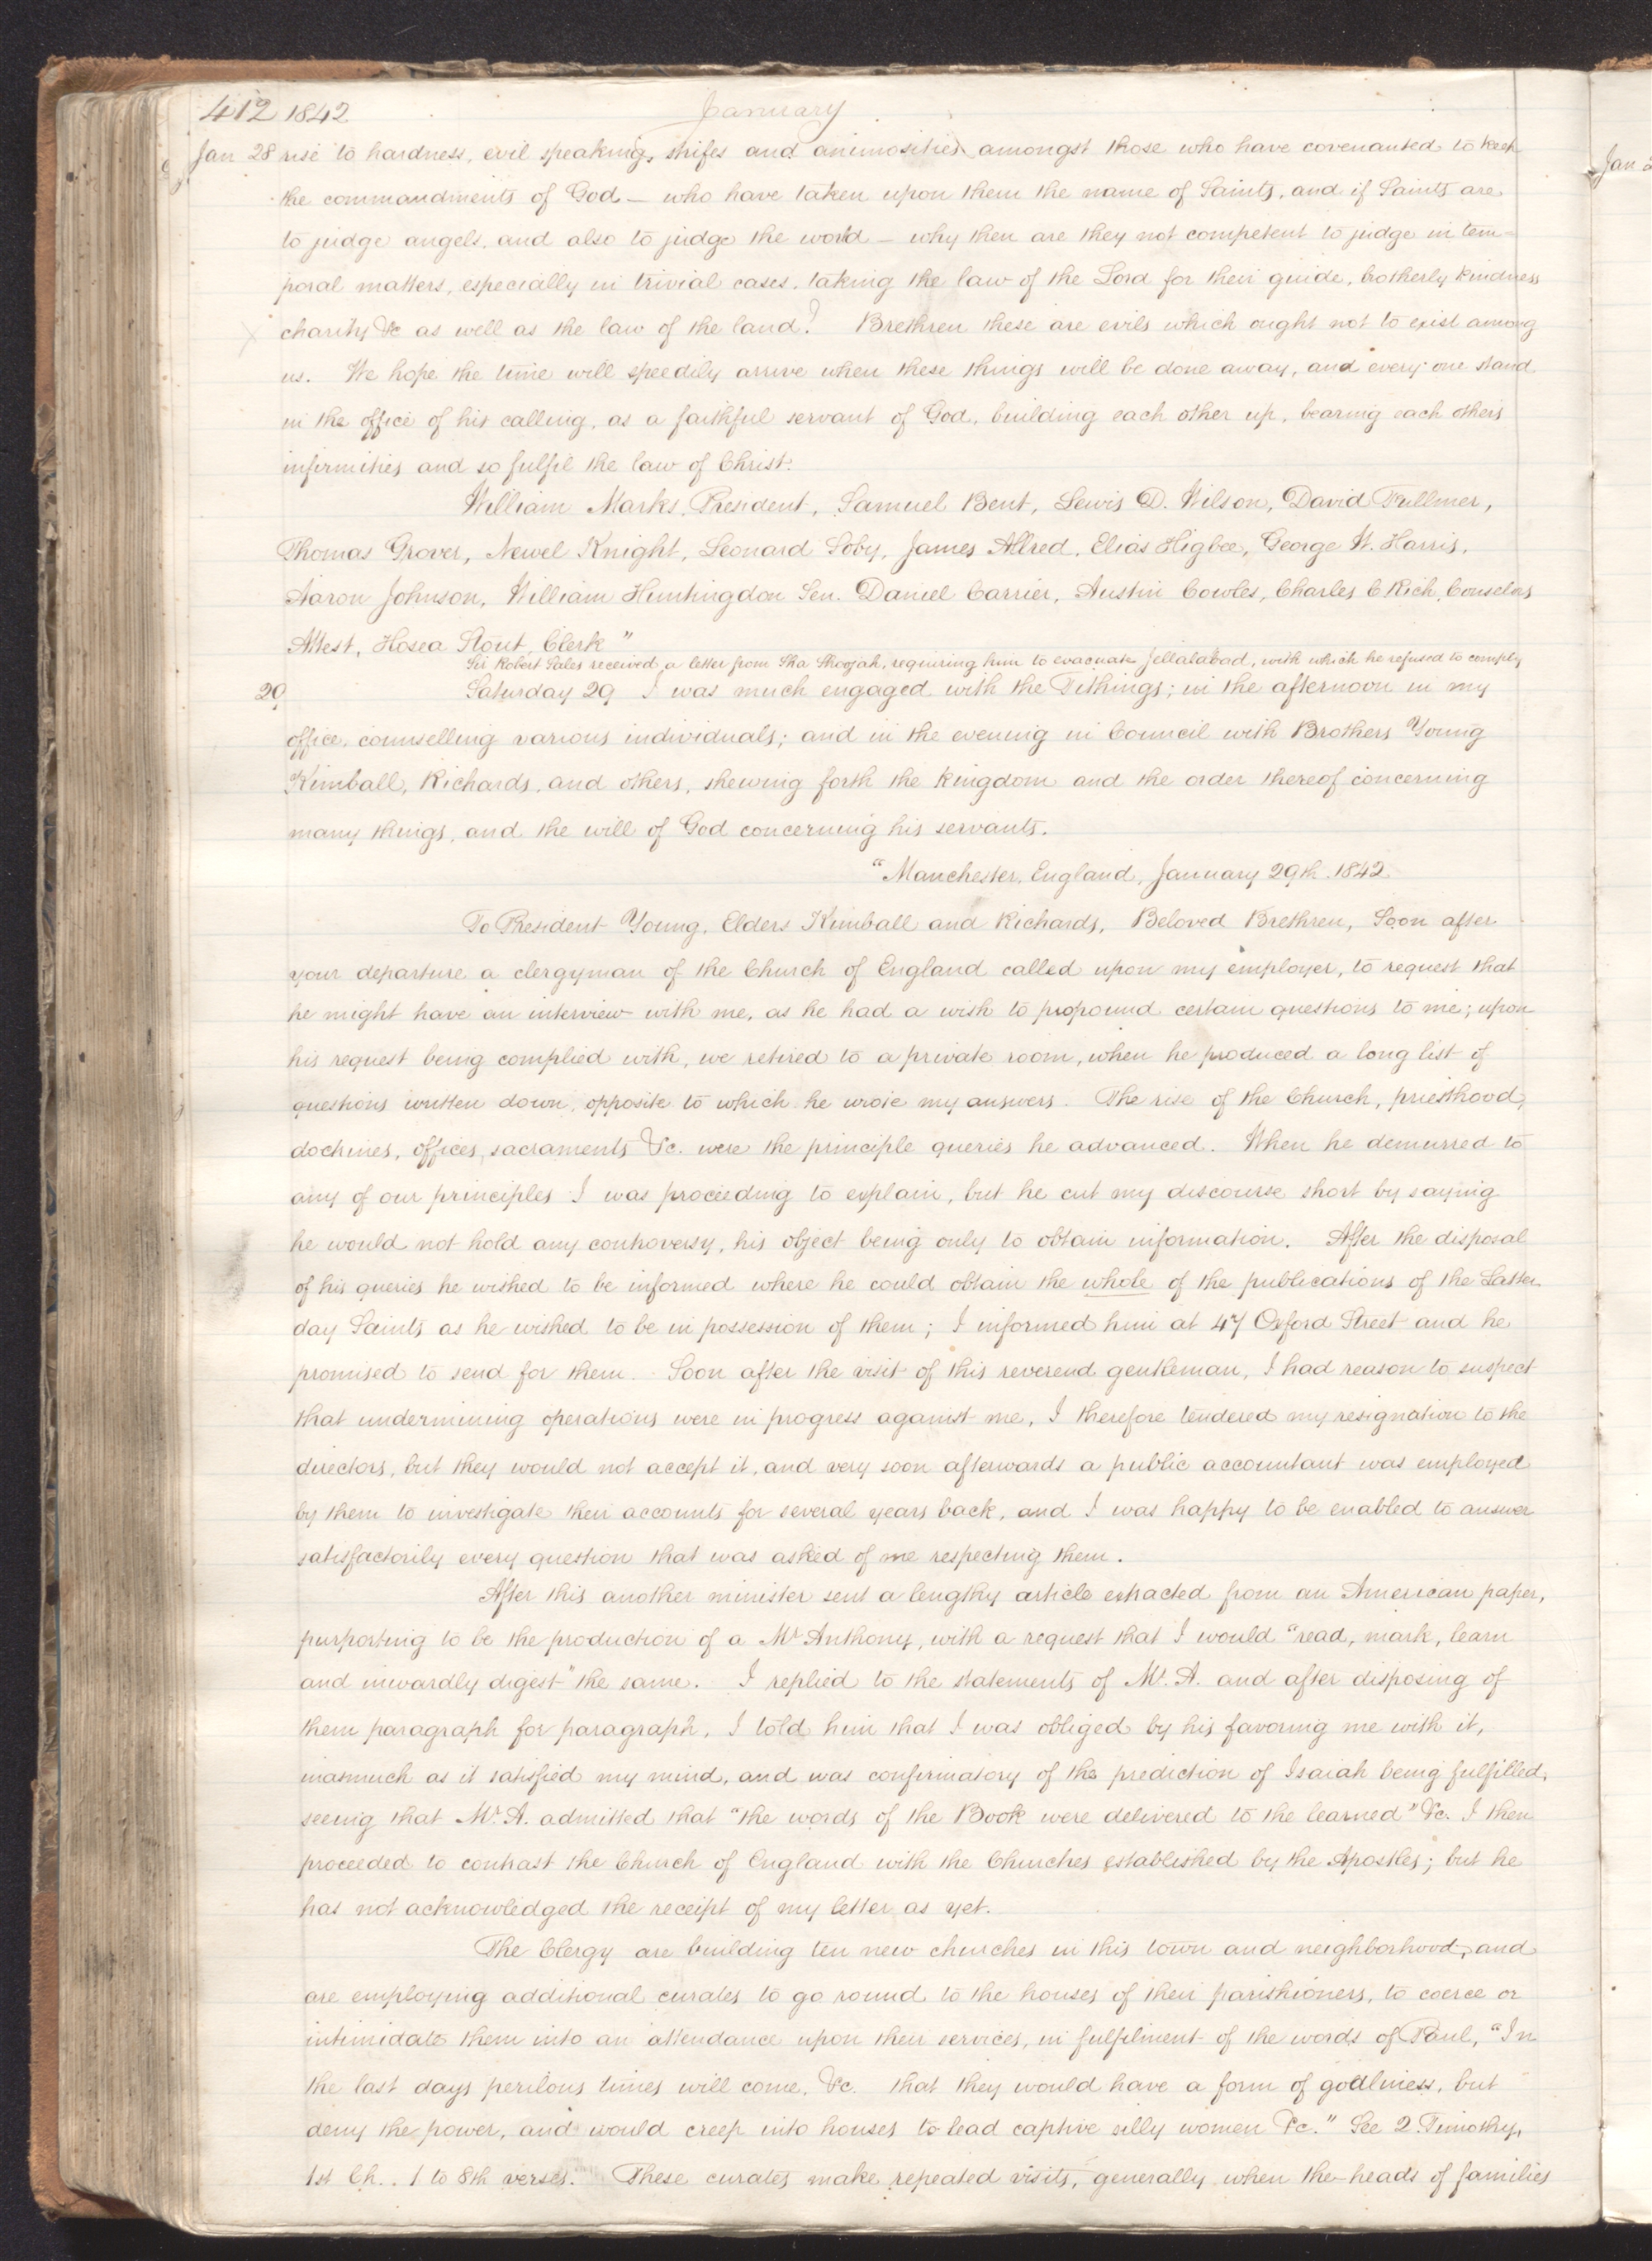 412 1842 January
Jan 28 rise to hardness, evil speaking, strifes and animosities amongst those who have covenanted to keep
the commandments of God — who have taken upon them the name of Saints, and if Saints are
to judge angels, and also to judge the world — why then are they not competent to judge in tem-
poral matters, especially in trivial cases, taking the law of the Lord for their guide, brotherly kindness
charity &c as well as the law of the land? Brethren these are evils which ought not to exist among
us. We hope the time will speedily arrive when these things will be done away, and every one stand
in the office of his calling, as a faithful servant of God, building each other up, bearing each others
infirmities and so fulfil the law of Christ.
William Marks, President, Samuel Bent, Lewis D. Wilson, David Fullmer,
Thomas Grover, Newel Knight, Leonard Soby, James Allred, Elias Higbee, George W. Harris,
Aaron Johnson, William Huntingdon Sen. Daniel Carrier, Austin Cowles, Charles C Rich, Counselors
Attest, Hosea Stout, Clerk"
Sir Robert Sales received a letter from Sha Shoojah, requiring him to evacuate Jellalabad, with which he refused to comply
29 Saturday 29 I was much engaged with the Tithings; in the afternoon in my
office, counselling various individuals; and in the evening in Council with Brothers Young
Kimball, Richards, and others, shewing forth the kingdom and the order thereof concerning
many things, and the will of God concerning his servants.
"Manchester, England, January 29th. 1842.
To President Young, Elders Kimball and Richards, Beloved Brethren, Soon after
your departure a clergyman of the Church of England called upon my employer, to request that
he might have an interview with me, as he had a wish to propound certain questions to me; upon
his request being complied with, we retired to a private room, when he produced a long list of
questions written down, opposite to which he wrote my answers. The rise of the Church, priesthood,
doctrines, offices, sacraments &c. were the principle queries he advanced. When he demurred to
any of our principles I was proceeding to explain, but he cut my discourse short by saying
he would not hold any controversy, his object being only to obtain information. After the disposal
of his queries he wished to be informed where he could obtain the whole of the publications of the Latter
day Saints as he wished to be in possession of them; I informed him at 47 Oxford Street and he
promised to send for them. Soon after the visit of this reverend gentleman, I had reason to suspect
that undermining operations were in progress against me, I therefore tendered my resignation to the
directors, but they would not accept it, and very soon afterwards a public accountant was employed
by them to investigate their accounts for several years back, and I was happy to be enabled to answer
satisfactorily every question that was asked of me respecting them.
After this another minister sent a lengthy article extracted from an American paper,
purporting to be the production of a Mr Anthony, with a request that I would "read, mark, learn
and inwardly digest" the same. I replied to the statements of Mr. A. and after disposing of
them paragraph for paragraph, I told him that I was obliged by his favoring me with it,
inasmuch as it satisfied my mind, and was confirmatory of the prediction of Isaiah being fulfilled,
seeing that Mr. A. admitted that "the words of the Book were delivered to the learned" &c. I then
proceeded to contrast the Church of England with the Churches established by the Apostles; but he
has not acknowledged the receipt of my letter as yet.
The Clergy are building ten new churches in this town and neighborhood, and
are employing additional curates to go round to the houses of their parishioners, to coerce or
intimidate them into an attendance upon their services, in fulfilment of the words of Paul, "In
the last days perilous times will come, &c. that they would have a form of godliness, but
deny the power, and would creep into houses to lead captive silly women &c." See 2. Timothy,
1st Ch.. 1 to 8th verses. These curates make repeated visits, generally when the heads of families
Jan 2